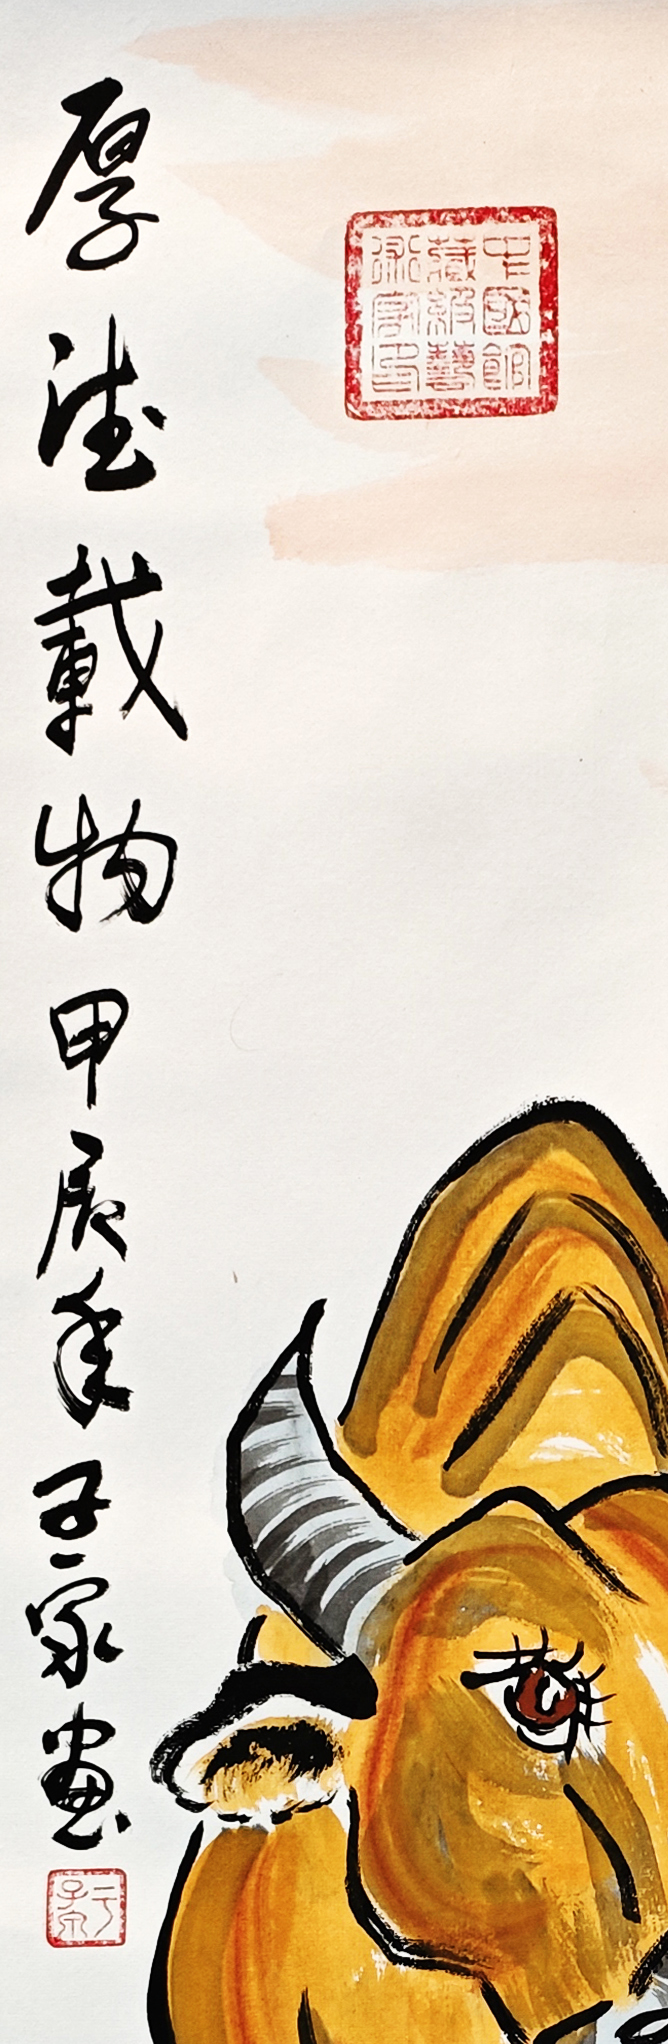 厚德載物 甲辰年 子家画
中國館
藏級藝
術家印